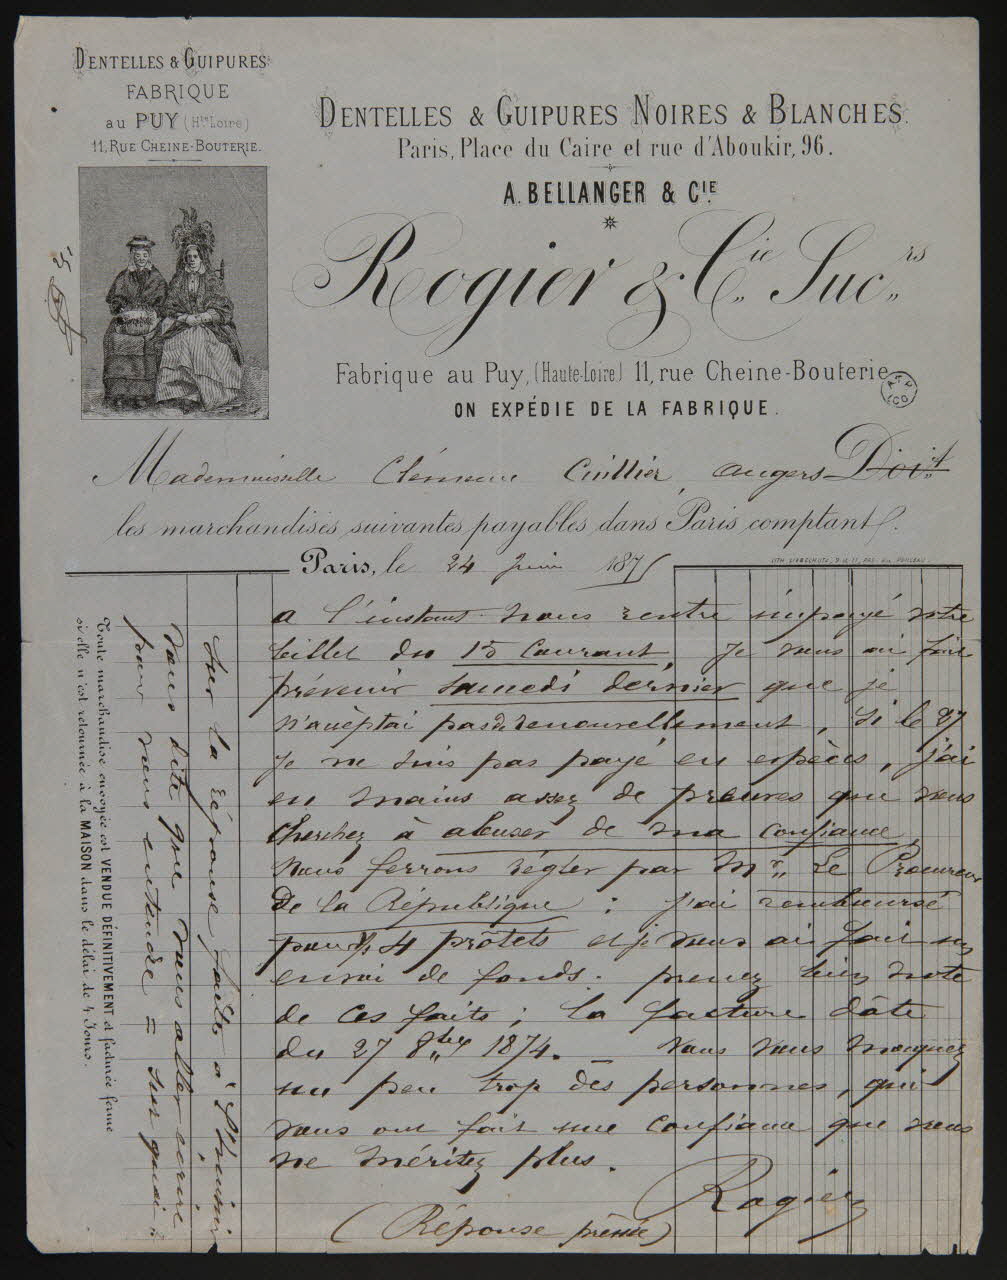 DENTELLES & GUIPURES
FABRIQUE
au PUY (Hte Loire)
11, RUE CHEINE-BOUTERIE.
DENTELLES & GUIPURES NOIRES & BLANCHES.
Paris, Place du Caire et rue d'Aboukir, 96.
A. BELLANGER & CIE.
Rogier & Cie Sucrs
Fabrique au Puy, (Haute-Loire) 11, rue Cheine-Bouterie
ON EXPÉDIE DE LA FABRIQUE.
Mademoiselle Clémence Cuillier, angers Doit
les marchandises suivantes payables dans Paris comptant.
Paris, le 24 Juin 1875
a l'instant nous rentre impayé votre
billet du 15 Courant, Je vous ai fait
prévenir Samedi dernier que je
n'acèptai pas de renouvellement, Si le 27
Je ne suis pas payé en espèces, j'ai
en mains assez de preuves que vous
cherchez à abuser de ma confiance,
nous ferrons régler par Mr Le Procureur
De la République : j'ai remboursé
pour 4 protêts et je vous ai fait un
envoi de fonds. prenez bien note
de ces faits ; la facture dâte
du 27 8bre 1874. _ Vous vous moquez
un peu trop des personnes, qui
vous ont fait une confiance que vous
ne méritez plus.
Rogier
(Réponse pressée)
Sur la réponse faite à l'huissier
vous dite que vous aller écrire
pour vous entendre = sur quoi :
Toute marchandise envoyée est VENDUE DÉFINITIVEMENT et facturée ferme
si elle n'est retournée à la MAISON dans le délai de 4 Jours.